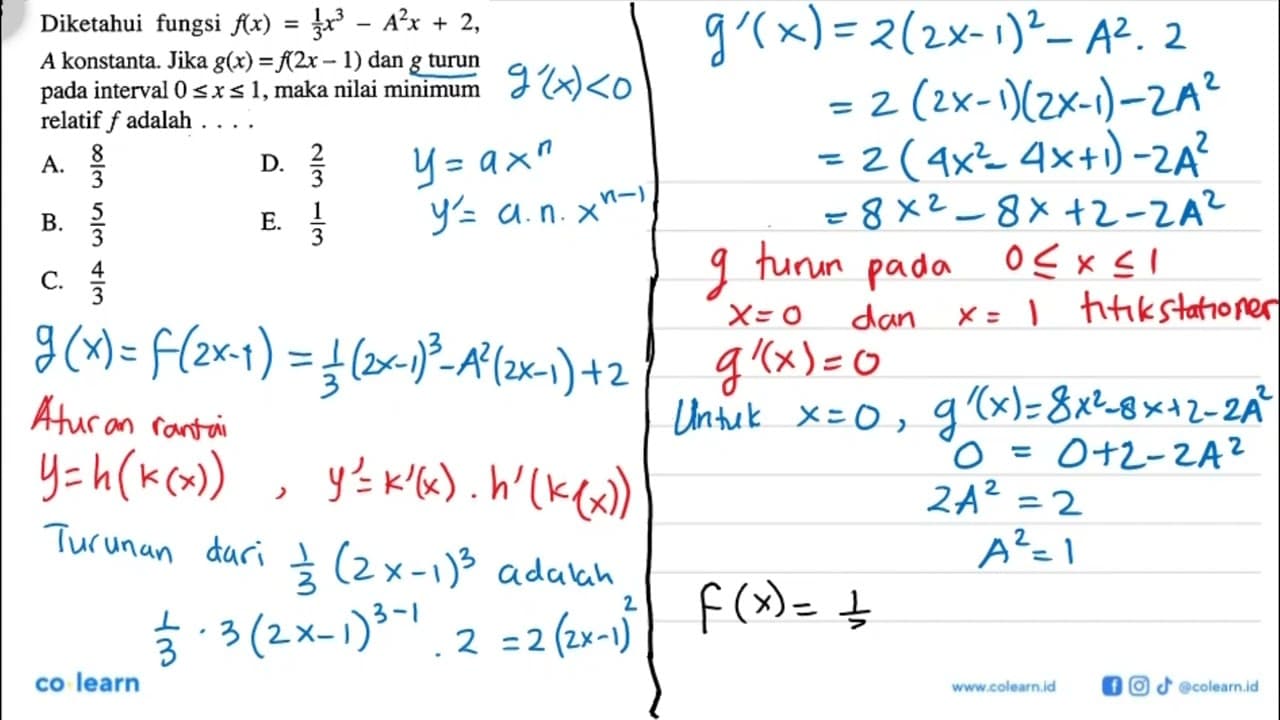 Diketahui fungsi f(x) = 1/3x³ – A²x + 2,
A konstanta. Jika g(x) = f(2x – 1) dan g turun
pada interval 0 ≤ x ≤ 1, maka nilai minimum
relatif f adalah . . . .
A. 8/3
B. 5/3
C. 4/3
D. 2/3
E. 1/3
g'(x)<0
y = axⁿ
y' = a.n.xⁿ⁻¹
g(x) = f(2x-1) = 1/3(2x-1)³-A²(2x-1)+2
Aturan rantai
y=h(k(x)) , y'=k'(x).h'(k(x))
Turunan dari 1/3 (2x-1)³ adalah
1/3 · 3(2x-1)³⁻¹ . 2 = 2(2x-1)²
g'(x) = 2(2x-1)² - A². 2
= 2 (2x-1)(2x-1)-2A²
= 2 (4x²- 4x+1)-2A²
= 8x² - 8x +2-2A²
g turun pada 0 ≤ x ≤ 1
x=0 dan x = 1 titik stationer
g'(x) = 0
Untuk x=0, g'(x)=8x²-8x+2-2A²
0 = 0+2-2A²
2A² = 2
A²=1
f(x) = 1/
co learn
www.colearn.id @colearn.id